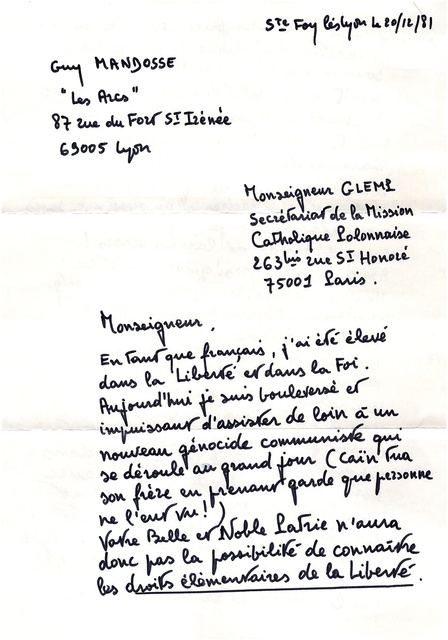 Ste Foy lès Lyon le 20/12/81
Guy MANDOSSE
"Les Arcs"
87 rue du Fort St Irénée
69005 Lyon
Monseigneur GLEMP
Secrétariat de la Mission
Catholique Polonnaise
263 bis rue St Honoré
75001 Paris.
Monseigneur,
En tant que français, j'ai été élevé
dans la Liberté et dans la Foi.
Aujourd'hui je suis bouleversé et
impuissant d'assister de loin à un
nouveau génocide communiste qui
se déroule au grand jour (Caïn tua
son frère en prenant garde que personne
ne l'eut vu!)
Votre Belle et Noble Patrie n'aura
donc pas la possibilité de connaître
les droits élémentaires de la Liberté.